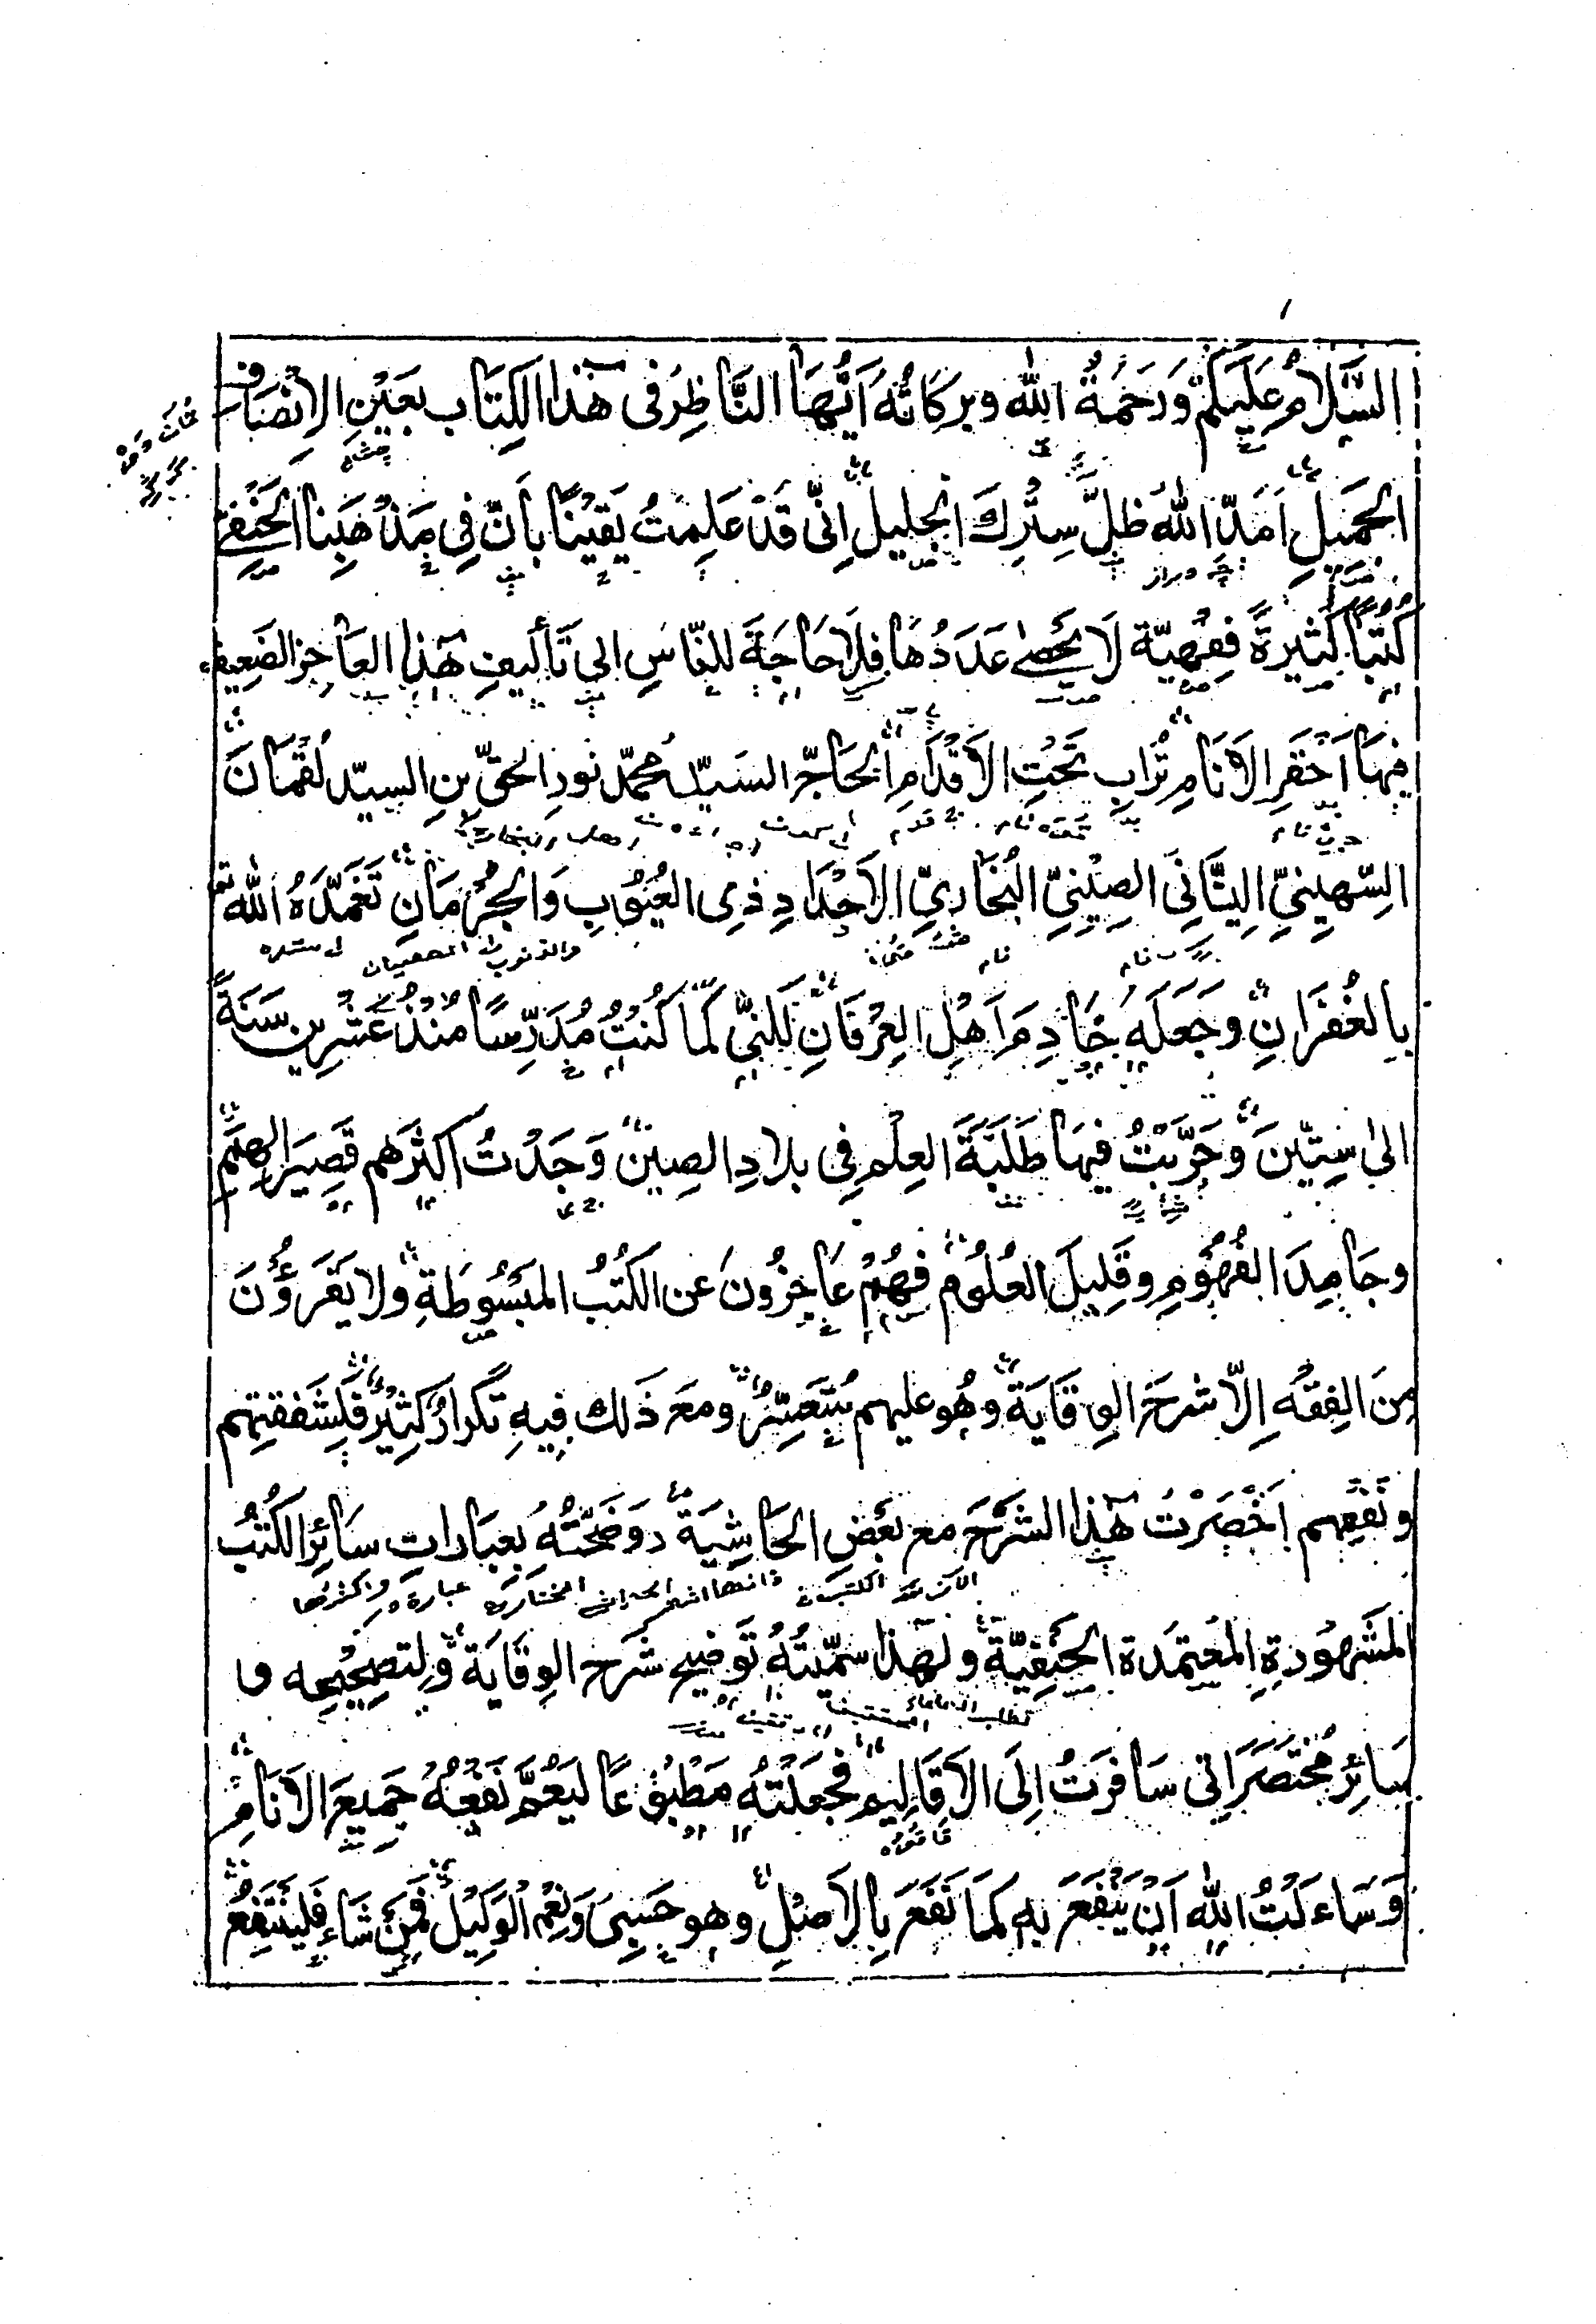 السَّلَامُ عَلَيكُمْ وَرَحْمَةُ الله وبركاتُهُ اَيُّهَا النَّاظِرُ فى هٰذا الكِتَاب بعَيْنِ الاِنْصَافِ
الجَمِيلِ اَمَدَّ اللهُ ظلَّ سِتْرِكَ الجليل اِنِّى قَدْ عَلِمْتُ يَقِيْنًا بأَنّ فِى مَذْهَبِنا الحَنَفِيِّ
كُتُبًا كَثِيرَةً فِقْهِيّة لَا يُحصٰى عَدَدُهَا فلَا حَاجَةَ للنّاسِ الى تَأليفِ هٰذا العَاجِزِ الضَعِيفِ
فِيْهَا اَحْقَرِ الاَنَامِ تُرَابِ تَحْتِ الاَقْدَامِ الحَاجِّ السَيِّد مُحمَّد نورِ الحقِّ بنِ السيِّد لُقمَانَ
السِّهِينِيِّ اللِيَّانِيِّ الصِيْنِيِّ البُخَارِيِّ الاَجْدَادِ ذِى العُيُوْبِ وَالجُرْمَانِ تَغَمَّدَهُ الله تع
بِالغُفْرَانِ وجَعَلَهٗ خَادِمَ اَهْلِ العِرْفَانِ لٰكِنِّى لَمَّا كُنْتُ مُدَرِّسًا مُنْذُ عِشْرِينَ سَنَةً
الىٰ سِتِّينَ وجَرَّبْتُ فيهَا طَلَبَةَ العِلْمِ فِى بلادِ الصِينِ وَجَدْتُ اكثرَهم قَصِيرَ الهِمَمِ
وجَامِدَ الفُهُوْمِ وقَلِيلَ العُلُوْمِ فَهُمْ عَاجِزُونَ عَن الكُتُبِ المَبْسُوطَةِ ولا يَقْرَؤُنَ
مِنَ الفِقْه اِلَّا شرحَ الوِقَايَةِ وهُو عليهم مُتَعَسِّرٌ ومعَ ذَلك فِيهِ تكرارٌ كَثِيْرٌ فلِشَفقتِهم
ونَفْعِهم اخْتَصَرْتُ هٰذا الشَّرْحَ مع بعْضِ الحَاشِيَةِ ووَضَّحْتُهٗ بعِبَاراتِ سَائِرِ الكُتُبِ
المَشْهُوْرةِ المُعْتَمَدَة الحَنَفِيّةِ ولهٰذا سمَّيتُهُ تَوضيح شَرح الوِقَايَة ولِتصحِيْحِه و
سَائِرِ مُخْتَصَرَاتِى سَافَرْتُ اِلَى الاَقَالِيم فجَعَلْتُهٗ مَطْبُوْعًا ليَعُمَّ نَفْعُهٗ جَمِيعَ الاَنَامِ
وَسَاءَلْتُ الله اَنْ يَنْفَعَ بهٖ كَمَا نَفَعَ بِالاَصْلِ وهو حَسْبِى وَنِعْمَ الْوَكِيْلُ فَمَنْ شَاءَ فَليَنْتَفِعْ